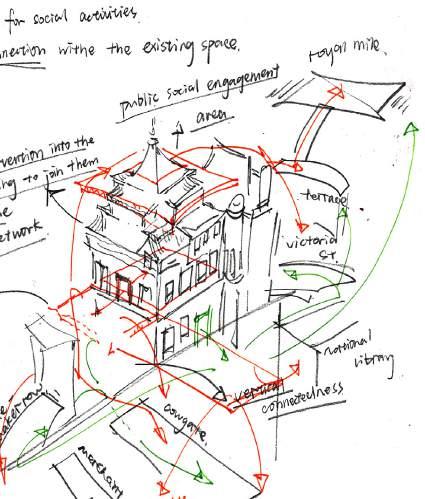 for social activities.
nnection withe the existing space.
royal mile.
public social engagement
area
vention into the
ng to join them
etwork
terrace
victoria
St.
national
library
vertical
connectedness
cowgate.
merchant